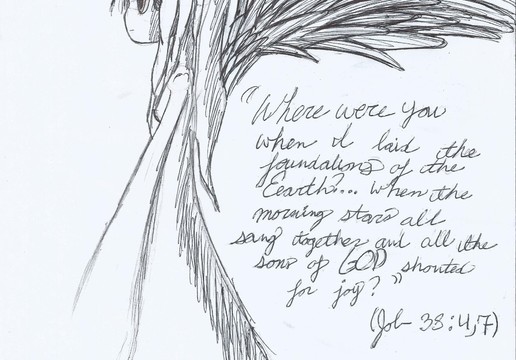 "Where were you
when I laid the
foundations of the
Eearth?... when the
morning stars all
sang together and all the
sons of GOD shouted
for joy?"
(Job 38:4,7)